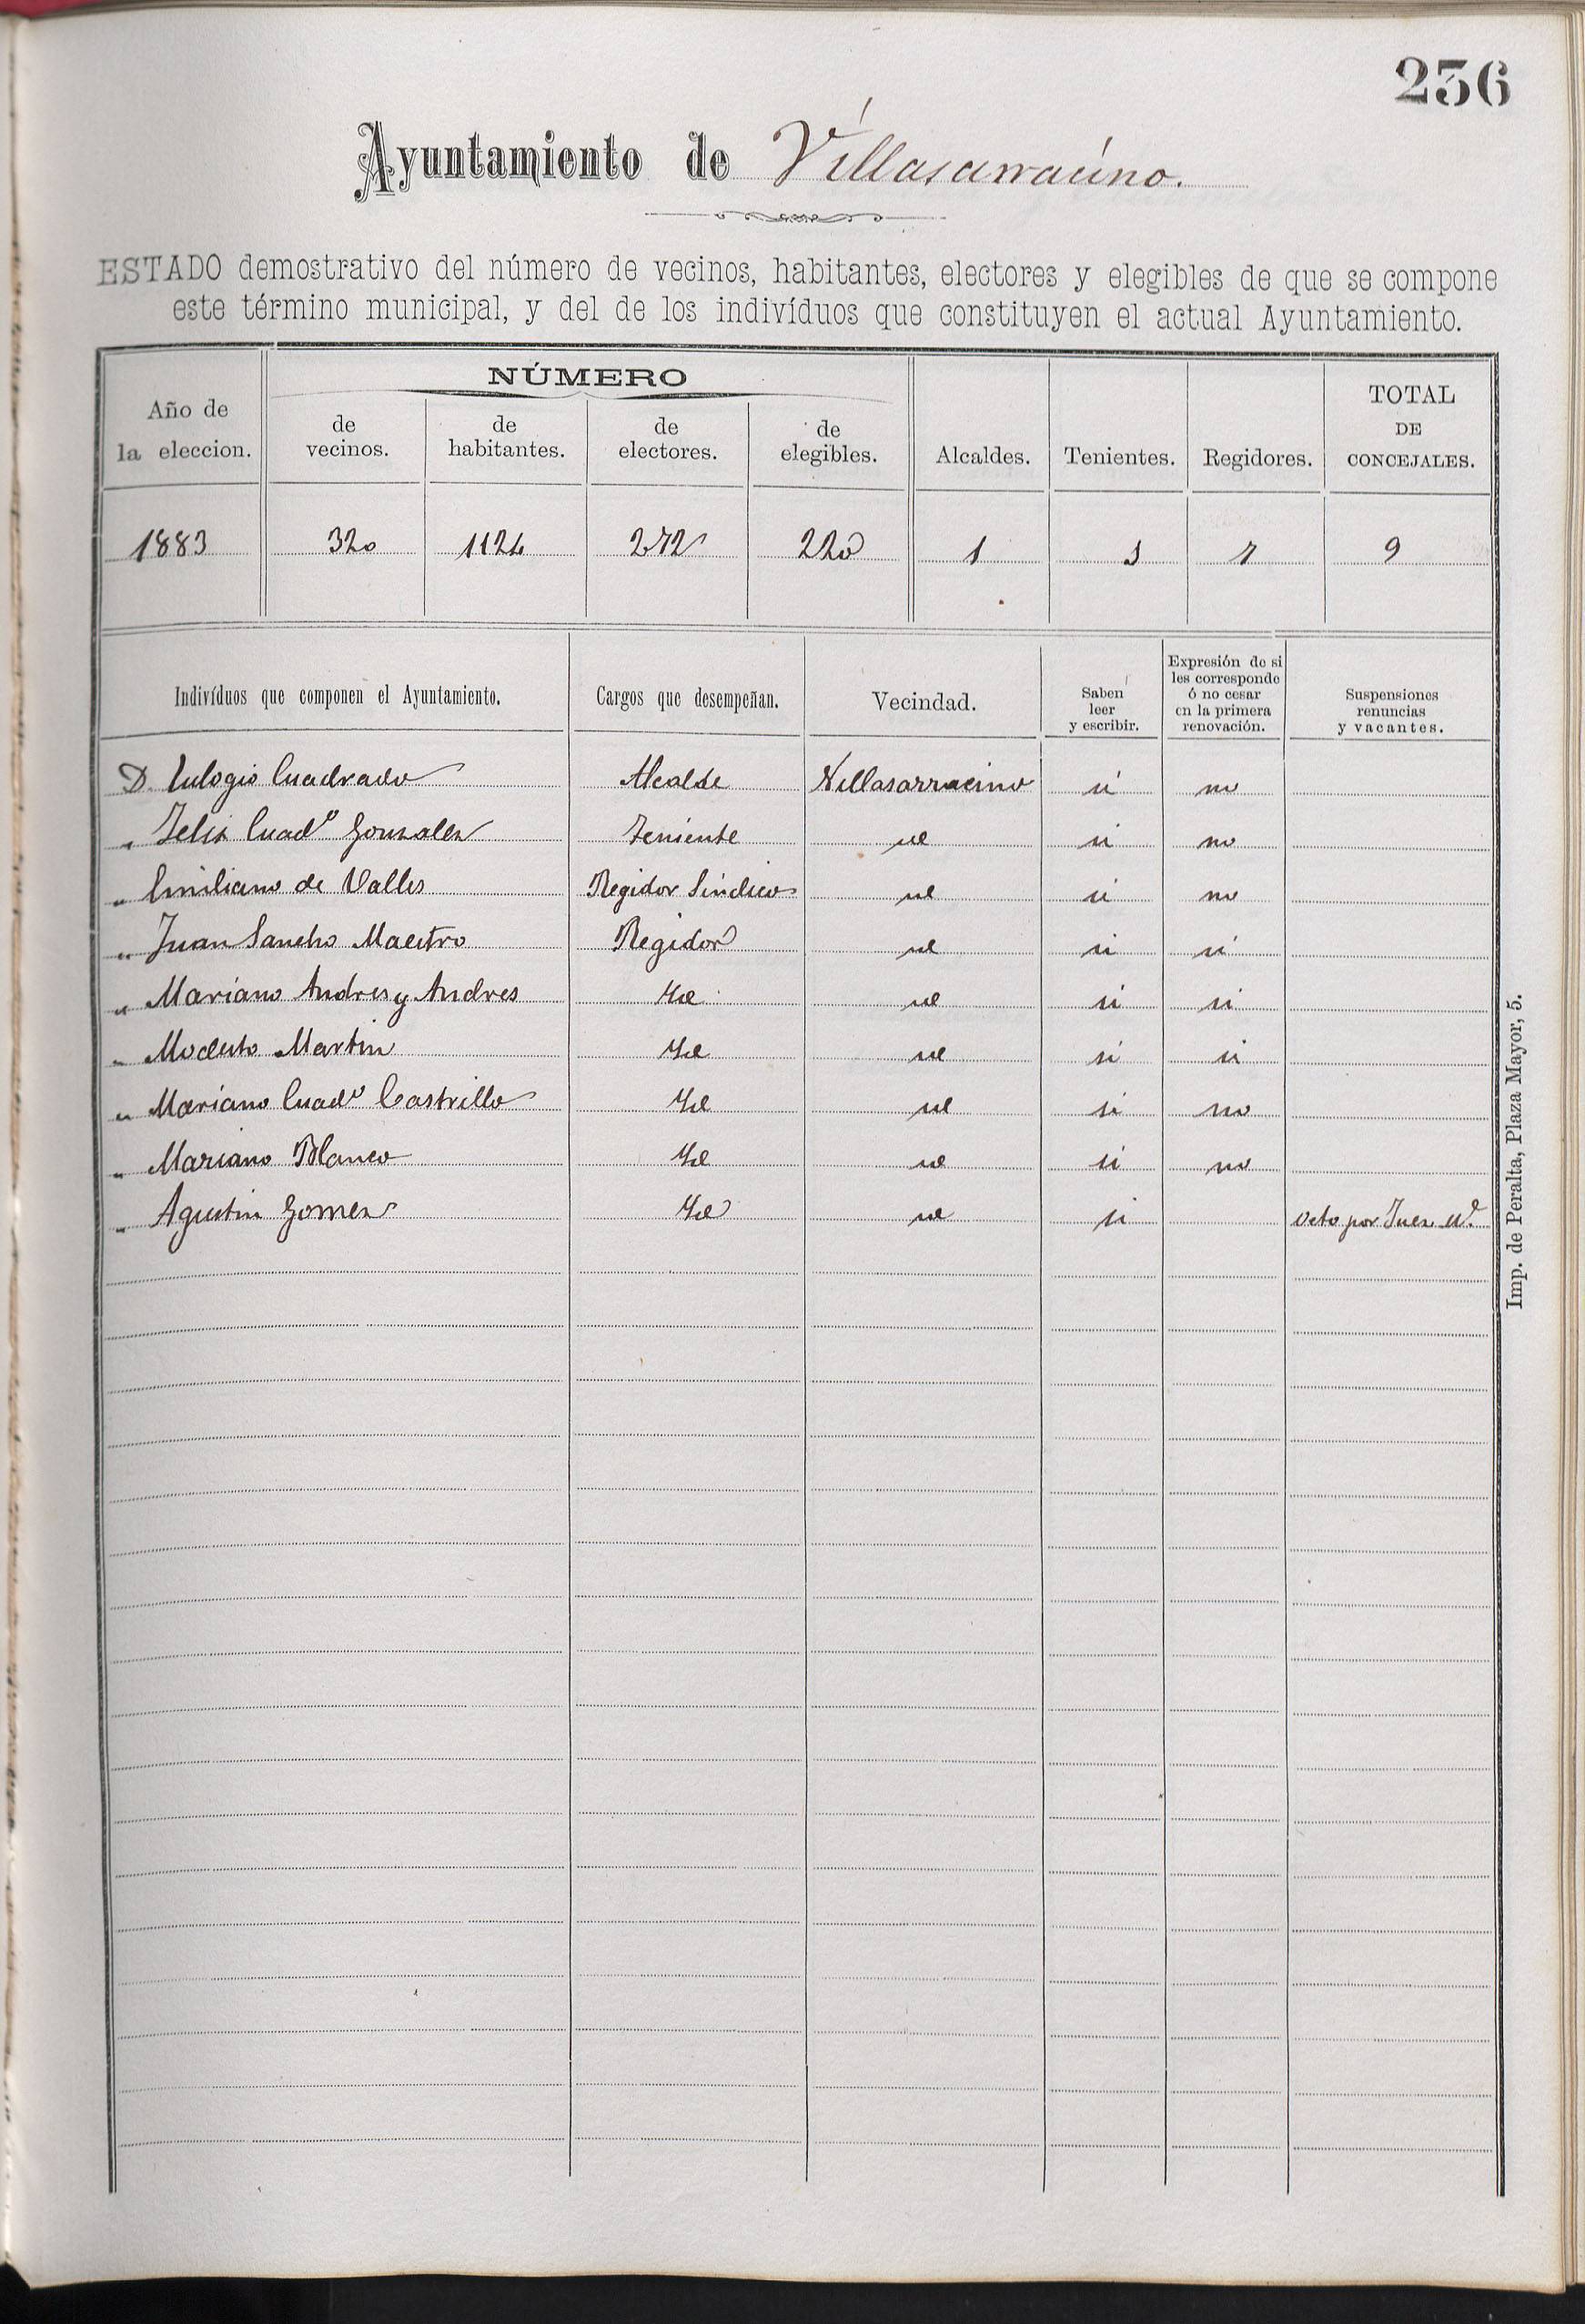 236
Ayuntamiento de Villasarracino.
ESTADO demostrativo del número de vecinos, habitantes, electores y elegibles de que se compone
este término municipal, y del de los indivíduos que constituyen el actual Ayuntamiento.
Año de la eleccion.
NÚMERO
de vecinos.
de habitantes.
de electores.
de elegibles.
Alcaldes.
Tenientes.
Regidores.
TOTAL DE CONCEJALES.
1883 320 1124 272 220 1 1 7 9
Indivíduos que componen el Ayuntamiento.
Cargos que desempeñan.
Vecindad.
Saben leer y escribir.
Expresión de si les corresponde ó no cesar en la primera renovación.
Suspensiones renuncias y vacantes.
D. Eulogio Cuadrado Alcalde Villasarracino si no
" Felix Cuadº Gonzalez Teniente id si no
" Emiliano de Valles Regidor Sindico id si no
" Juan Sancho Maestro Regidor id si si
" Mariano Andres y Andres Id id si si
" Modesto Martin Id id si si
" Mariano Cuadº Castrillo Id id si no
" Mariano Blanco Id id si no
" Agustin Gomez Id id si Vcte por Juez Ml
Imp. de Peralta, Plaza Mayor, 5.